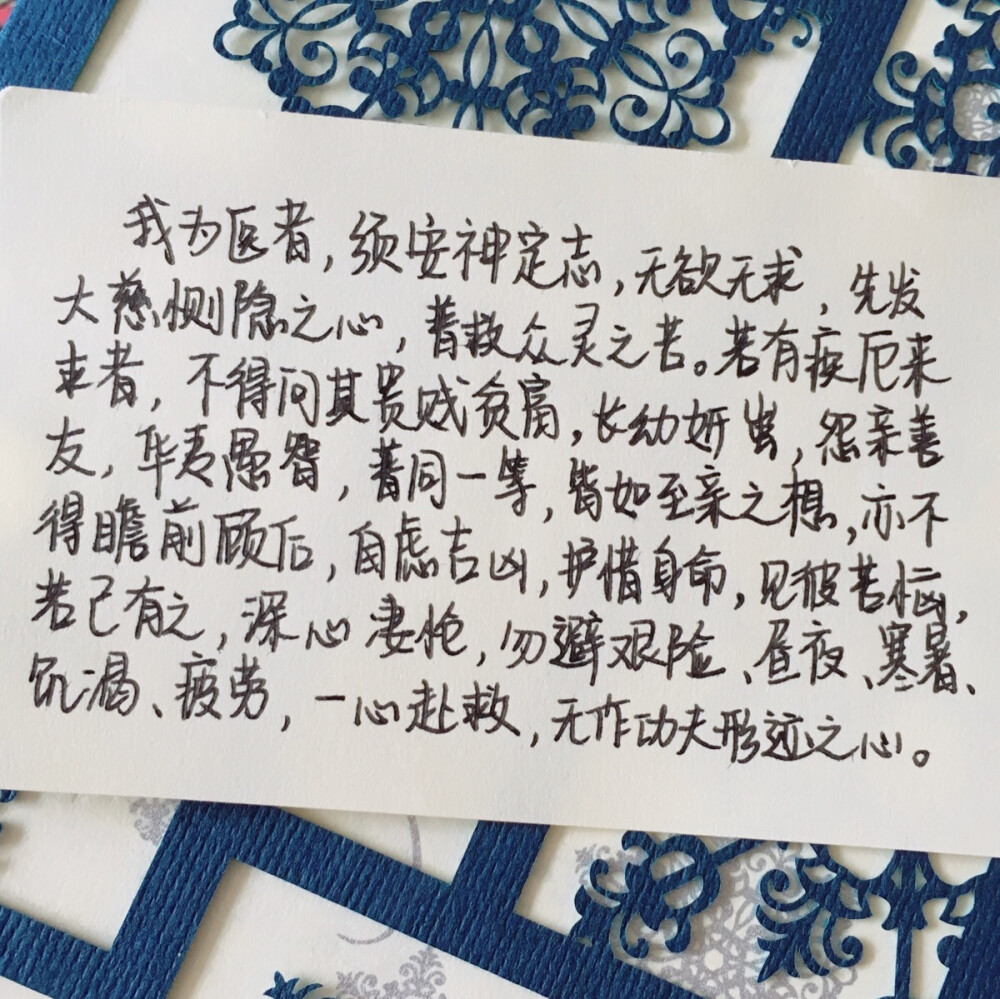 我为医者，须安神定志，无欲无求，先发
大慈恻隐之心，普救众灵之苦。若有疾厄来
求者，不得问其贵贱贫富，长幼妍蚩，怨亲善
友，华夷愚智，普同一等，皆如至亲之想，亦不
得瞻前顾后，自虑吉凶，护惜身命，见彼苦恼，
若己有之，深心凄怆，勿避艰险、昼夜、寒暑、
饥渴、疲劳，一心赴救，无作功夫形迹之心。